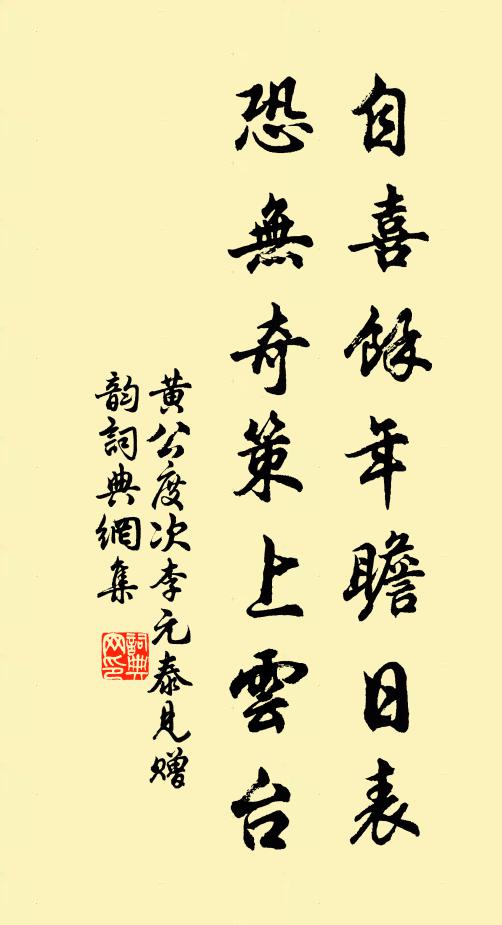 自喜餘年瞻日表
恐無奇策上雲台
黄公度次李元泰見贈
韵詞典網集
詞典網印